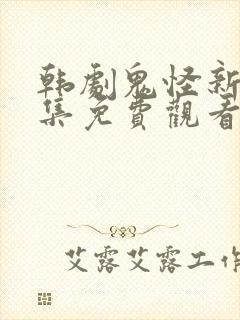 韩劇鬼怪新
集免費觀看
艾露艾露工作